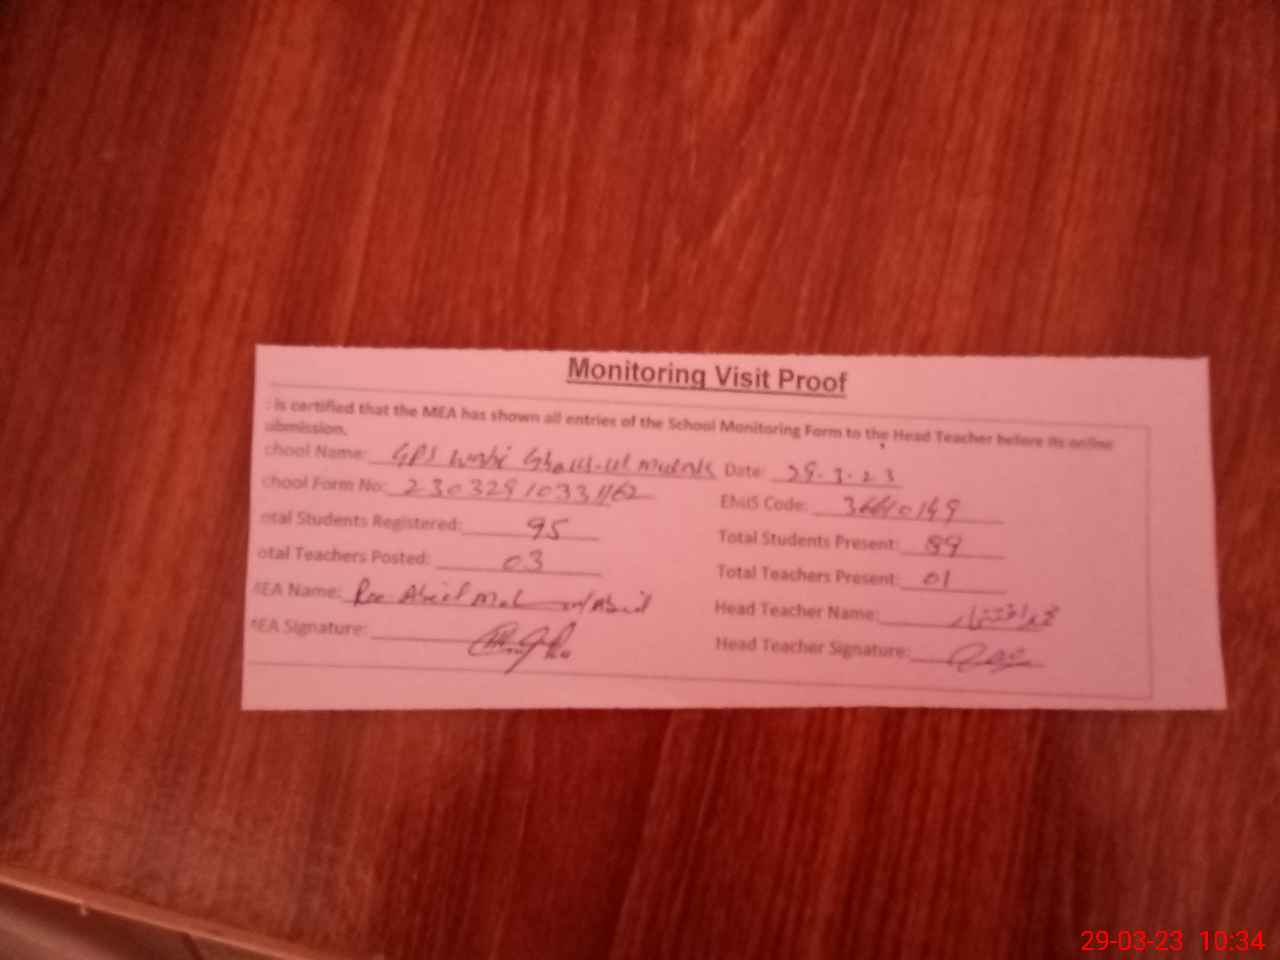 Monitoring Visit Proof
is certified that the MEA has shown all entries of the School Monitoring Form to the Head Teacher before its online
ubmission.
chool Name: GPS Date: 29.3.23
chool Form No: EMIS Code:
otal Students Registered: 95 Total Students Present: 89
otal Teachers Posted: 03 Total Teachers Present: 01
MEA Name: Head Teacher Name:
MEA Signature: Head Teacher Signature:
29-03-23 10:34